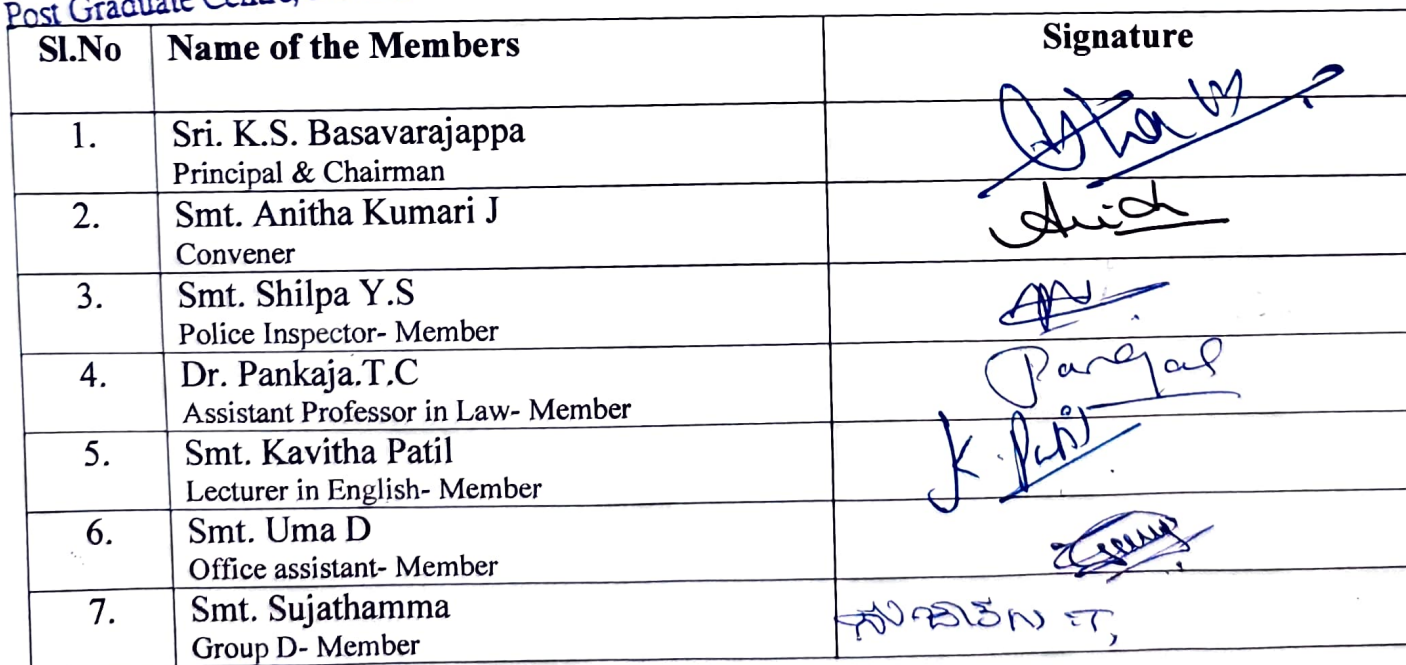 Post Graduate
Sl.No Name of the Members Signature
1. Sri. K.S. Basavarajappa
Principal & Chairman
2. Smt. Anitha Kumari J
Convener
3. Smt. Shilpa Y.S
Police Inspector- Member
4. Dr. Pankaja.T.C
Assistant Professor in Law- Member
5. Smt. Kavitha Patil K. Patil
Lecturer in English- Member
6. Smt. Uma D
Office assistant- Member
7. Smt. Sujathamma
Group D- Member